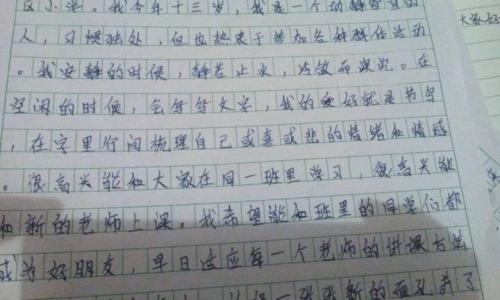 区小学。我今年十三岁，我是一个动静皆宜的
人，习惯独处，但也热衷于参加各种集体活动
。我安静的时候，静若止水，沉敛而深沉。在
空闲的时候，会写写文字，我的爱好就是书写
，在字里行间梳理自己或喜或悲的情绪和情感
。很高兴能和大家在同一班里学习，很高兴能
和新的老师上课。我希望能和班里的同学们都
成为好朋友，早日适应每一个老师的讲课方法
一张张新的面孔
大家好